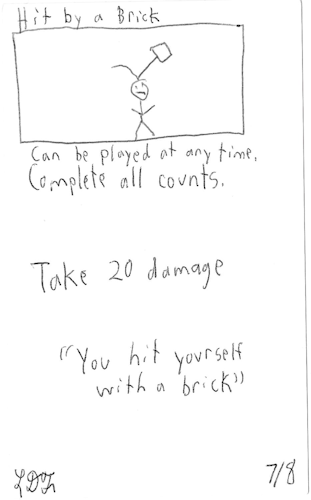 Hit by a Brick
Can be played at any time.
Complete all counts.
Take 20 damage
"You hit yourself
with a brick"
7/8